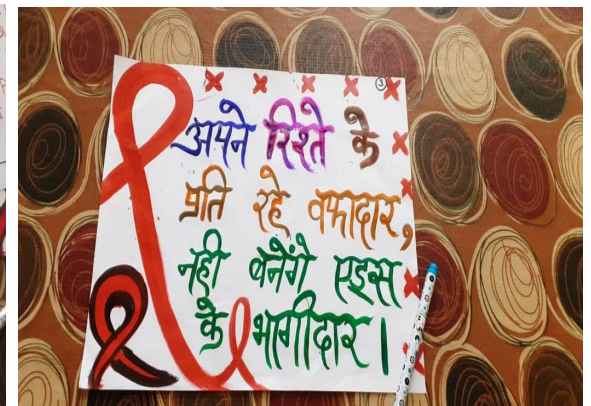 ③
अपने रिश्ते के
प्रति रहे वफादार,
नही बनेंगे एड्स
के भागीदार।